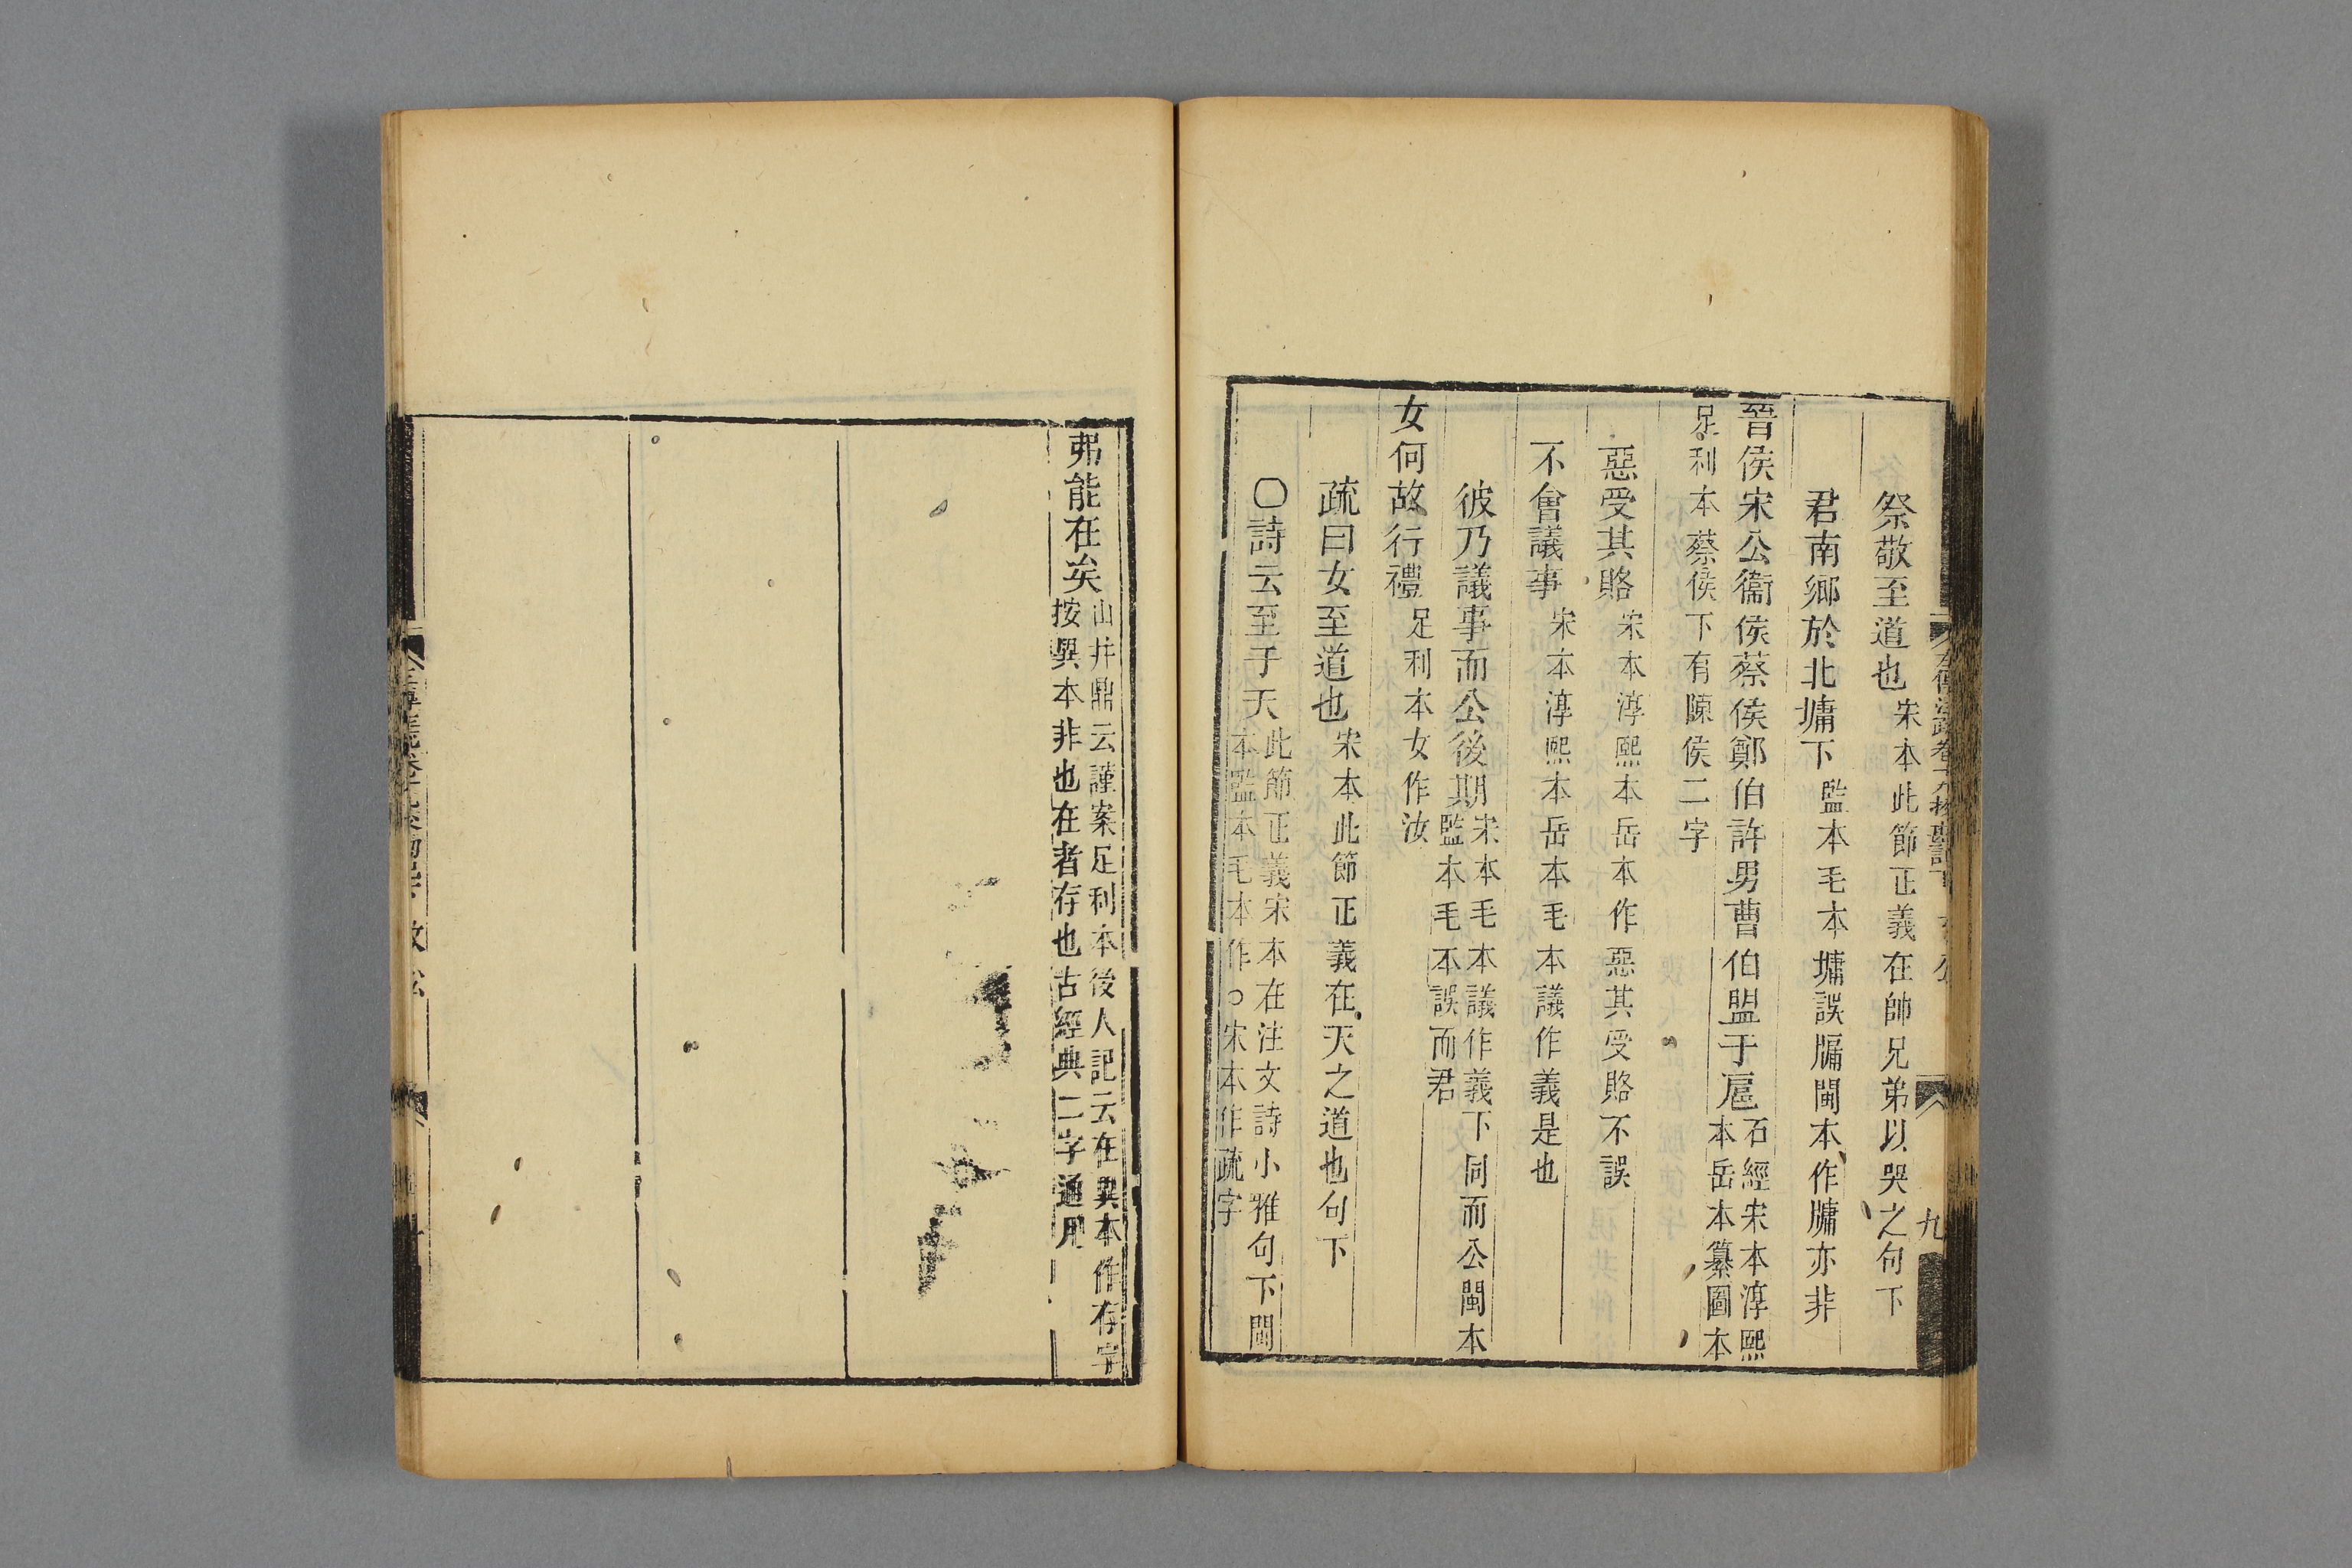 祭敬至道也宋本此節正義在帥兄弟以哭之句下
君南鄉於北墉下監本毛本墉誤牖閩本作牗亦非
晉侯宋公衞侯蔡侯鄭伯許男曹伯盟于扈石經宋本淳熙本岳本纂圖本
足利本蔡侯下有陳侯二字
惡受其賂宋本淳熙本岳本作惡其受賂不誤
不會議事宋本淳熙本岳本毛本議作義是也
彼乃議事而公後期宋本毛本議作義下同而公閩本監本毛本誤而君
女何故行禮足利本女作汝
疏曰女至道也宋本此節正義在天之道也句下
○詩云至于天此節正義宋本在注文詩小雅句下閩本監本毛本作○宋本作疏字
九
弗能在矣山井鼎云謹案足利本後人記云在異本作存字按異本非也在者存也古經典二字通用